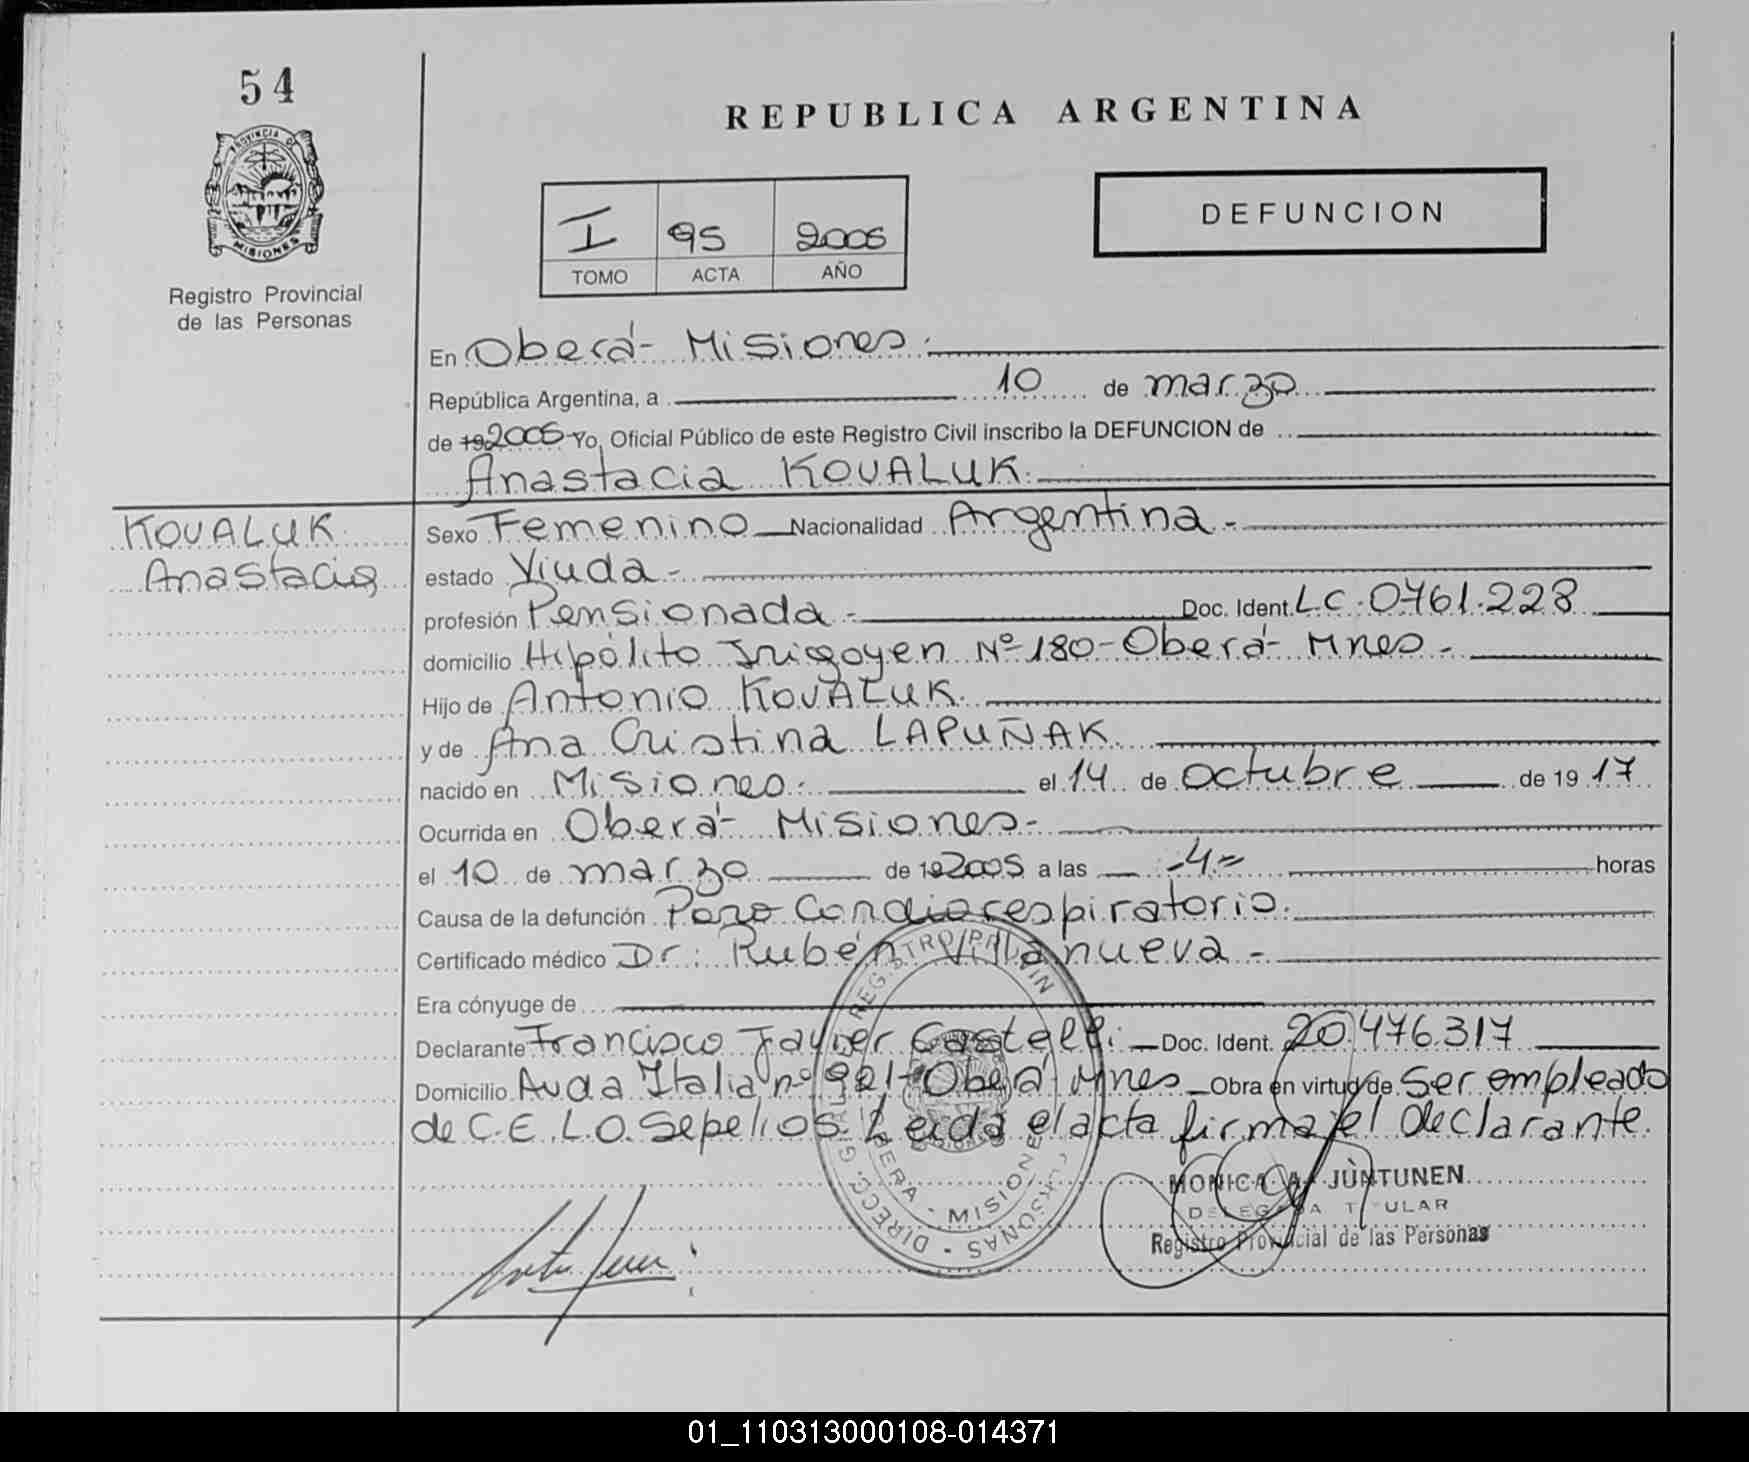 54
PROVINCIA DE
MISIONES
Registro Provincial
de las Personas
REPUBLICA ARGENTINA
I 95 2005
TOMO ACTA AÑO
DEFUNCION
En Oberá- Misiones.
República Argentina, a 10 de marzo
de 19 2005 Yo, Oficial Público de este Registro Civil inscribo la DEFUNCION de
Anastacia KOVALUK.
KOVALUK
Anastacia
Sexo Femenino Nacionalidad Argentina-
estado Viuda-
profesión Pensionada- Doc. Ident. LC. 0761.228
domicilio Hipólito Irigoyen Nº 180-Oberá- Mnes-
Hijo de Antonio KOVALUK.
y de Ana Cristina LAPUÑAK
nacido en Misiones. el 14 de octubre de 19 17
Ocurrida en Oberá- Misiones-
el 10 de marzo de 19 2005 a las -4= horas
Causa de la defunción Paro Cardiorespiratorio.
Certificado médico Dr: Rubén Villanueva-
Era cónyuge de
Declarante Francisco Javier Castelli Doc. Ident. 20.476.317
Domicilio Avda Italia nº 921-Oberá Mnes Obra en virtud de Ser empleado
de C.E.L.O. Sepelios. Leida el acta firma el declarante.
MONICA A. JUNTUNEN
DELEGADA TITULAR
Registro Provincial de las Personas
OBERA - MISIONES
01_110313000108-014371